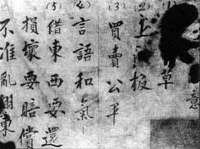 意
草
(2)上 板
(3)買賣公平
(4)言語和氣
(5)借東西要還
損壞要賠償
不准亂 東